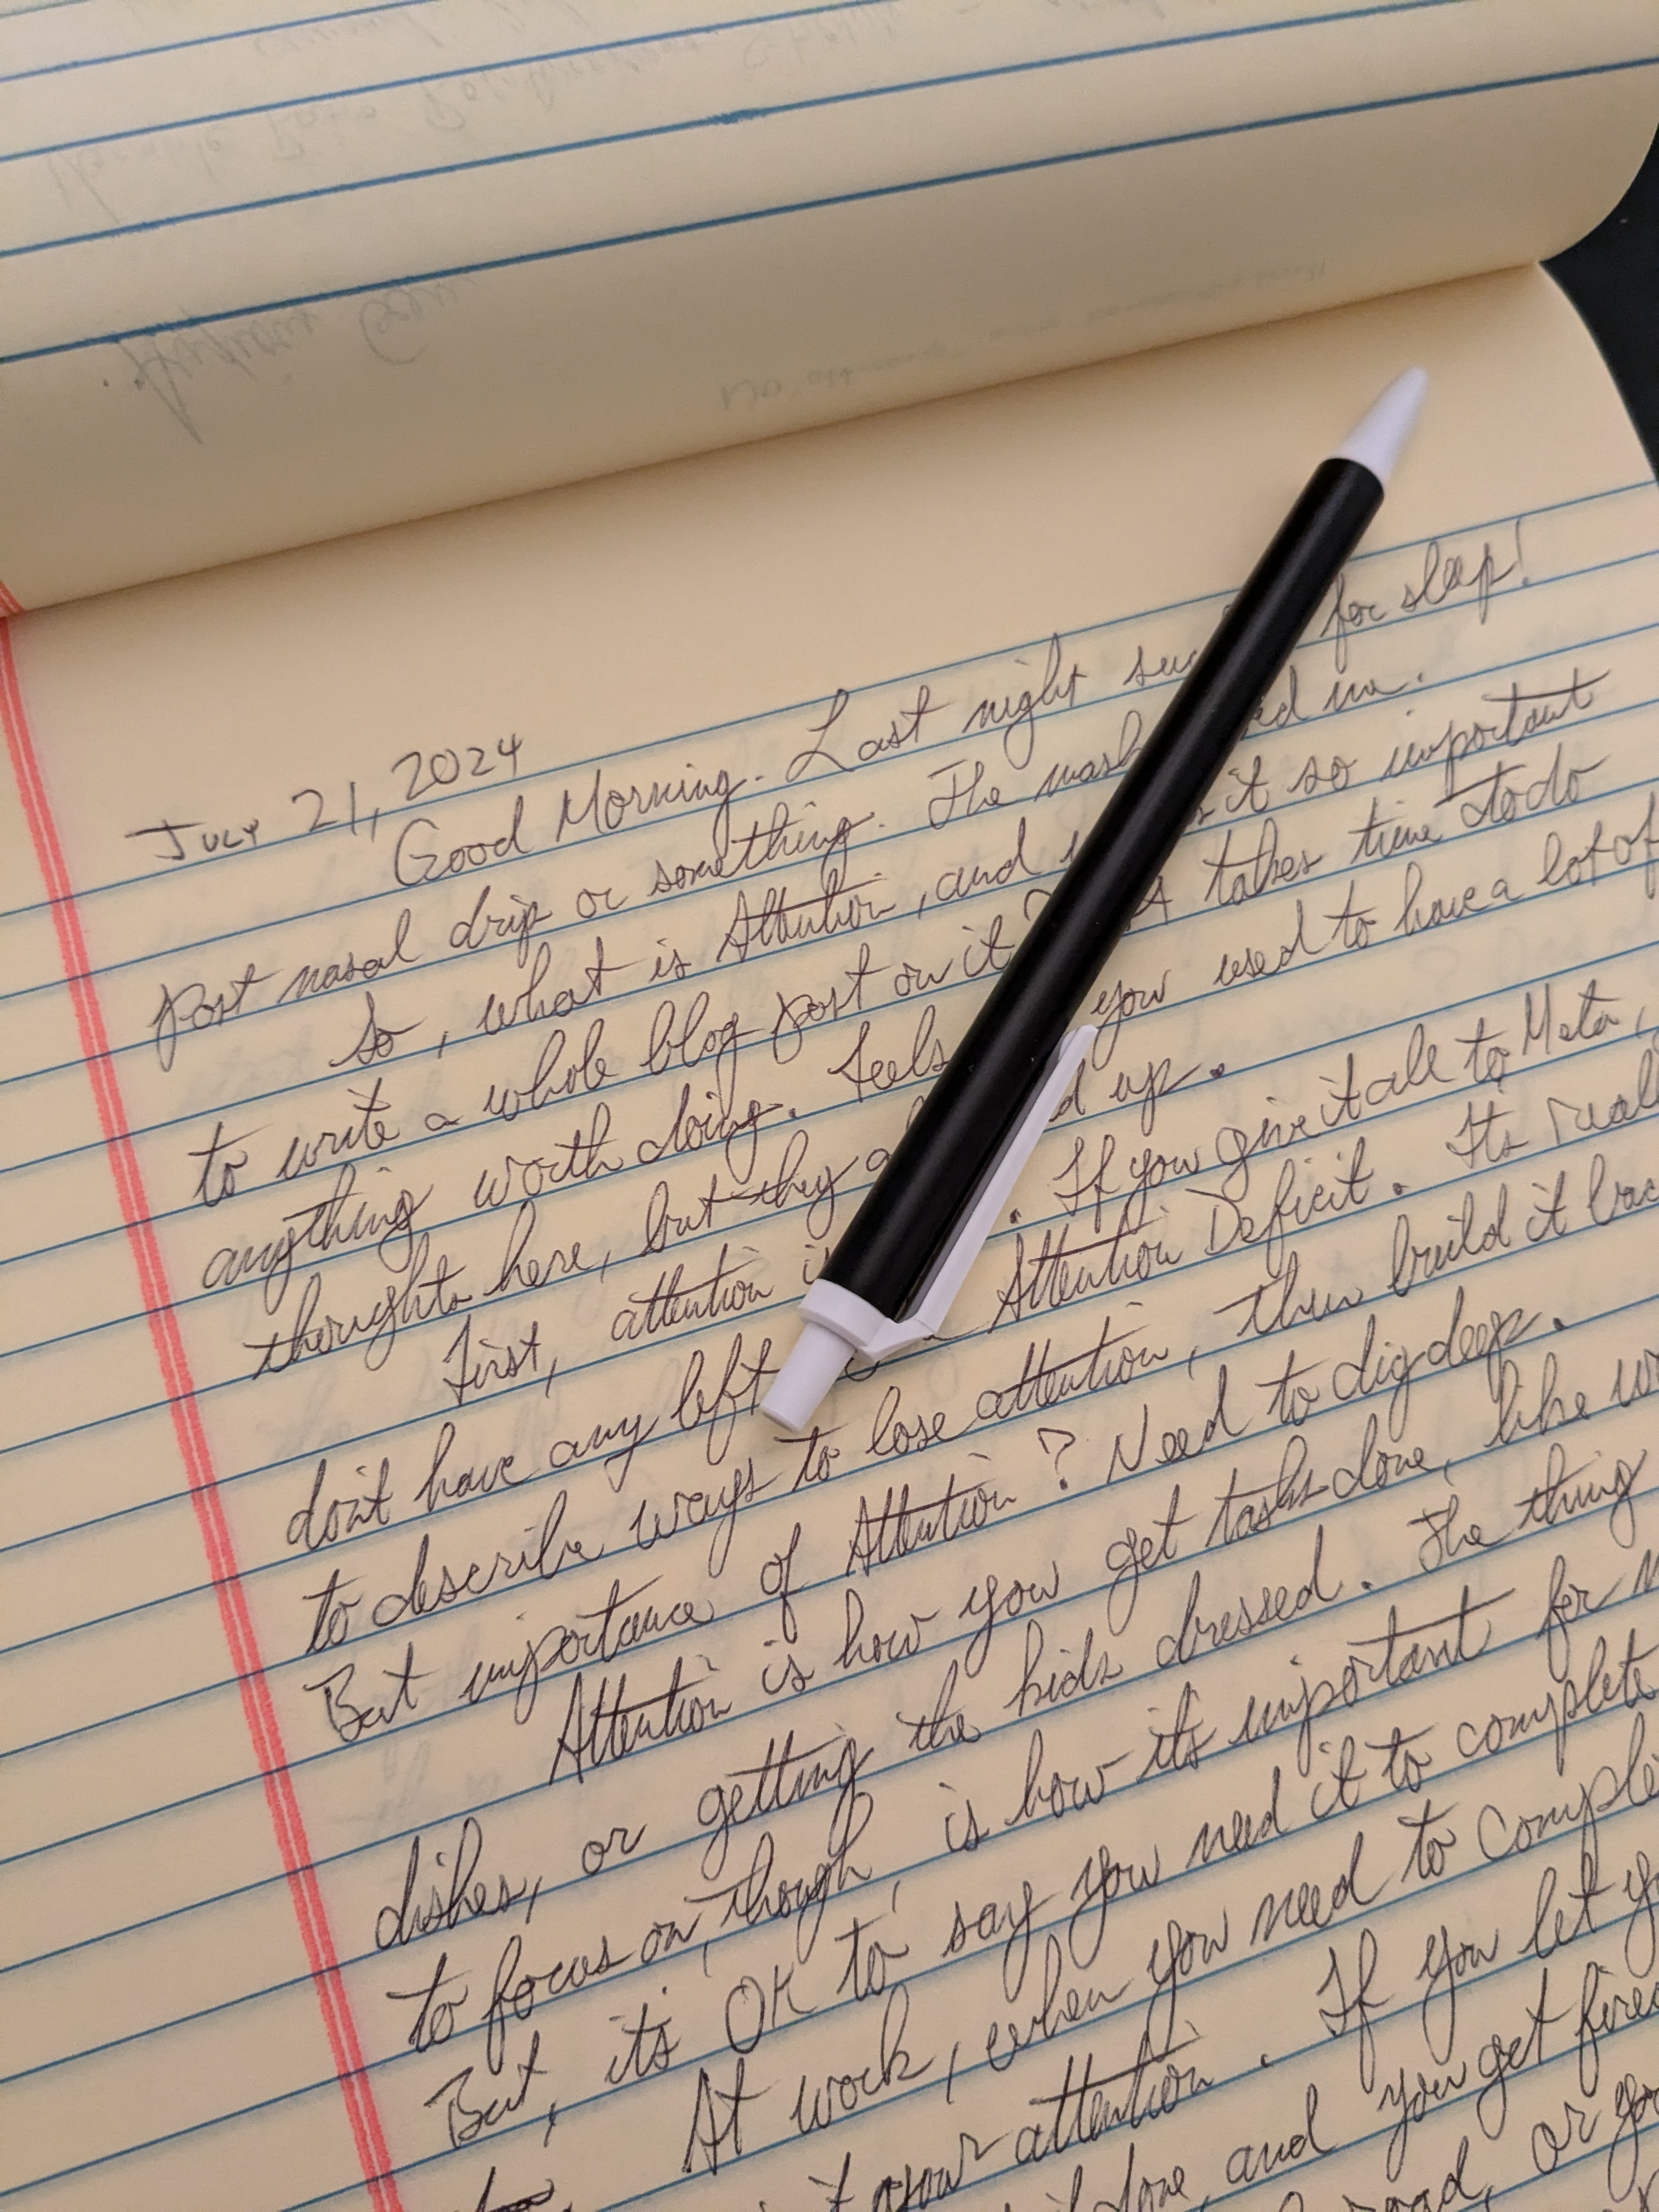 July 21, 2024
Good Morning. Last night for sleep!
post nasal drip or something. The mask me.
So, what is Attention, and it so important
to write a whole blog post on it? takes time to do
anything worth doing. Feels you used to have a lot of
thoughts here, but they up.
First, attention . If you give it all to Meta,
don't have any left Attention Deficit. Its
to describe ways to lose attention, then build it
But importance of Attention? Need to dig deep.
Attention is how you get tasks done, like
dishes, or getting the kids dressed. The thing
to focus on, though, is how it's important for
But, it's OK to say you need it to complete
At work, when you need to
it your attention. If you let
done, and you get
or